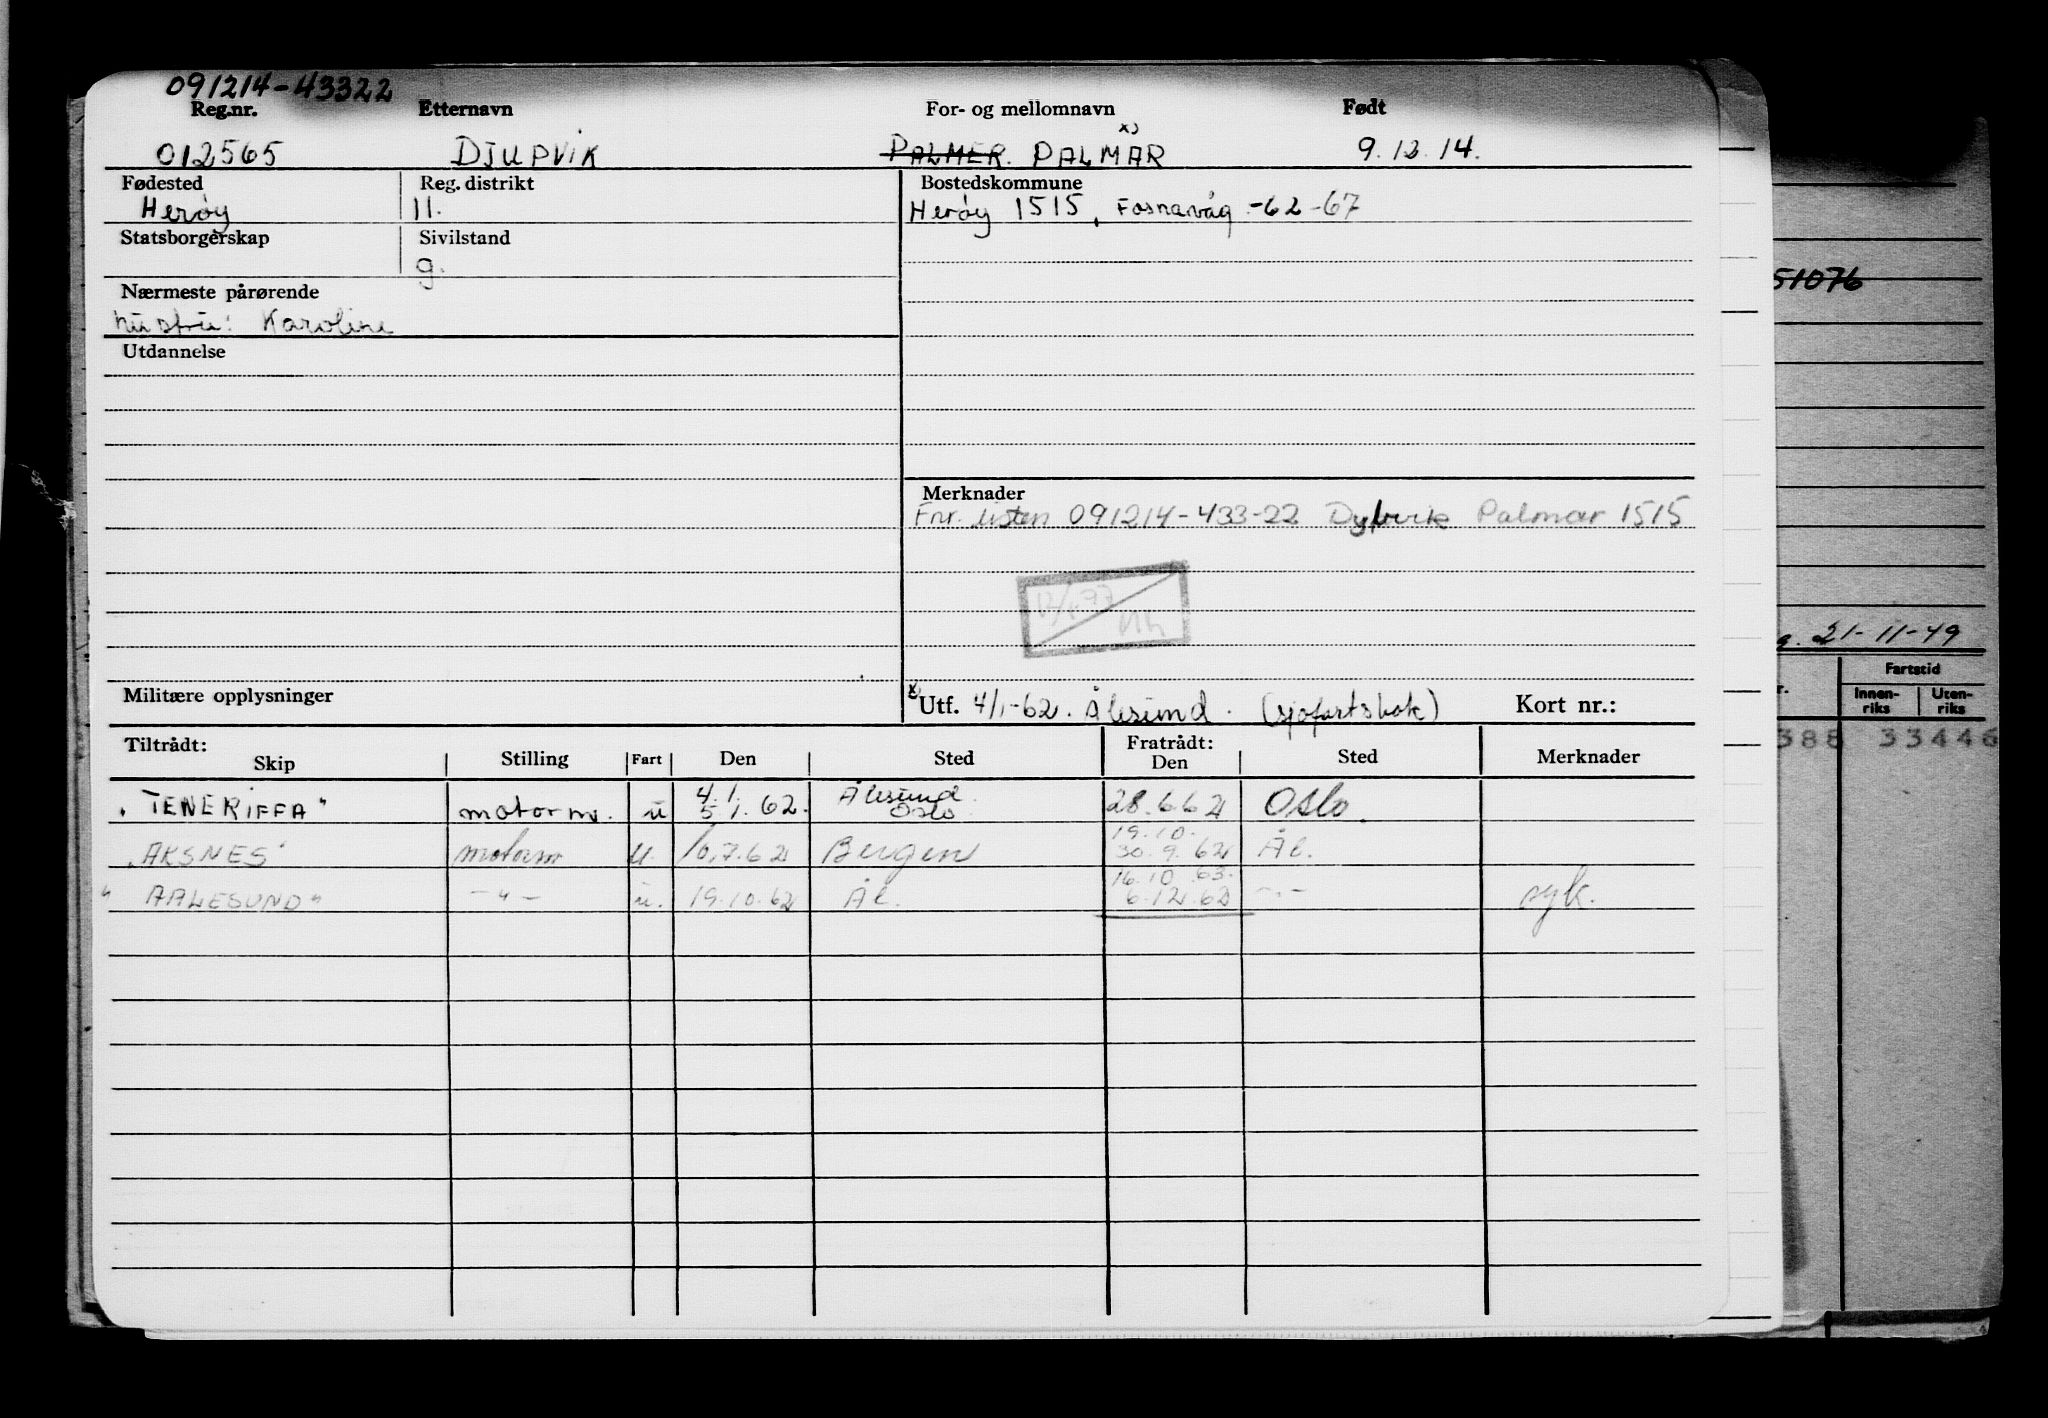 091214-43322
Reg.nr. Etternavn For- og mellomnavn Født
x)
012565 DJUPVIK PALMER. PALMAR 9.12.14.
Fødested Reg. distrikt Bostedskommune
Herøy 11. Herøy 1515, Fosnavåg -62 -67
Statsborgerskap Sivilstand
g.
51076
Nærmeste pårørende
hustru: Karoline
Utdannelse
Merknader
Fnr. listen 091214-433-22 Palmar 1515
21-11-49
Fartstid
Militære opplysninger x) Utf. 4/1-62. Ålesund. (sjøfartsbok) Kort nr.:
Innen-riks Uten-riks
388 33446
Tiltrådt: Fratrådt:
Skip Stilling Fart Den Sted Den Sted Merknader
4.1. Ålesund
"TENERIFFA" motorm. u 5.1.62. Oslo 28.6.62 Oslo
19.10.
"AKSNES" motorm u. 10.7.62 Bergen 30.9.62 Ål.
16.10.63.
"AALESUND" -"- u. 19.10.62 Ål. 6.12.62 -"- syk.